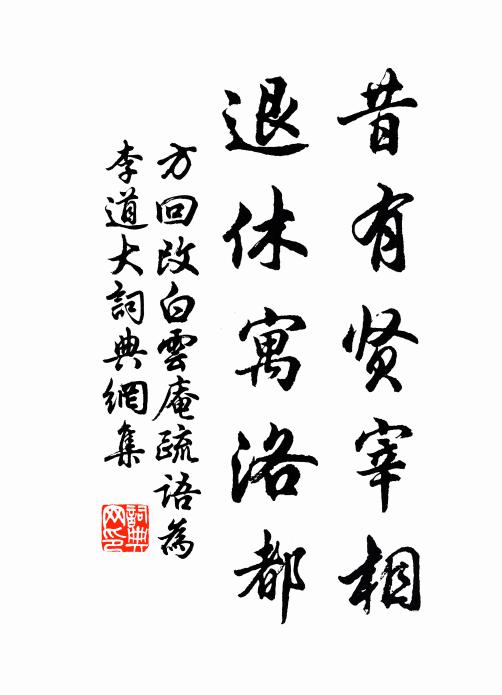 昔有贤宰相
退休寓洛都
方回改白雲庵疏語為
李道大詞典網集
詞典网印